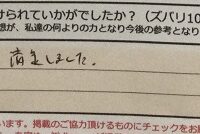 けられていかがでしたか?(ズバリ10
想が、私達の何よりの力となり今後の参考となり
満足しました。
います。掲載のご協力頂けるものにチェックをお